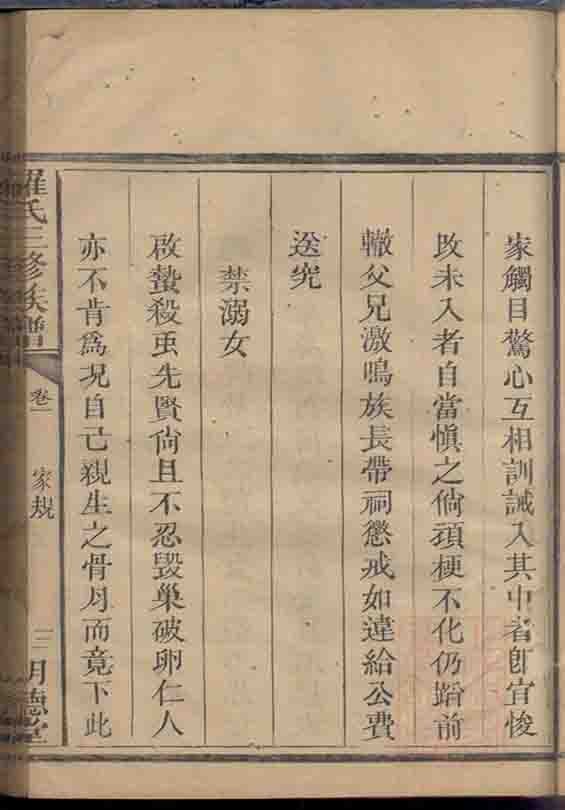 家觸目驚心互相訓誡入其中者卽宜悛
改未入者自當愼之倘頑梗不化仍蹈前
轍父兄激鳴族長帶祠懲戒如違給公費
送究
禁溺女
啟蟄殺虫先賢尙且不忍毀巢破卵仁人
亦不肯爲况自己親生之骨月而竟下此
羅氏三修族譜
卷一
家規
三
明德堂